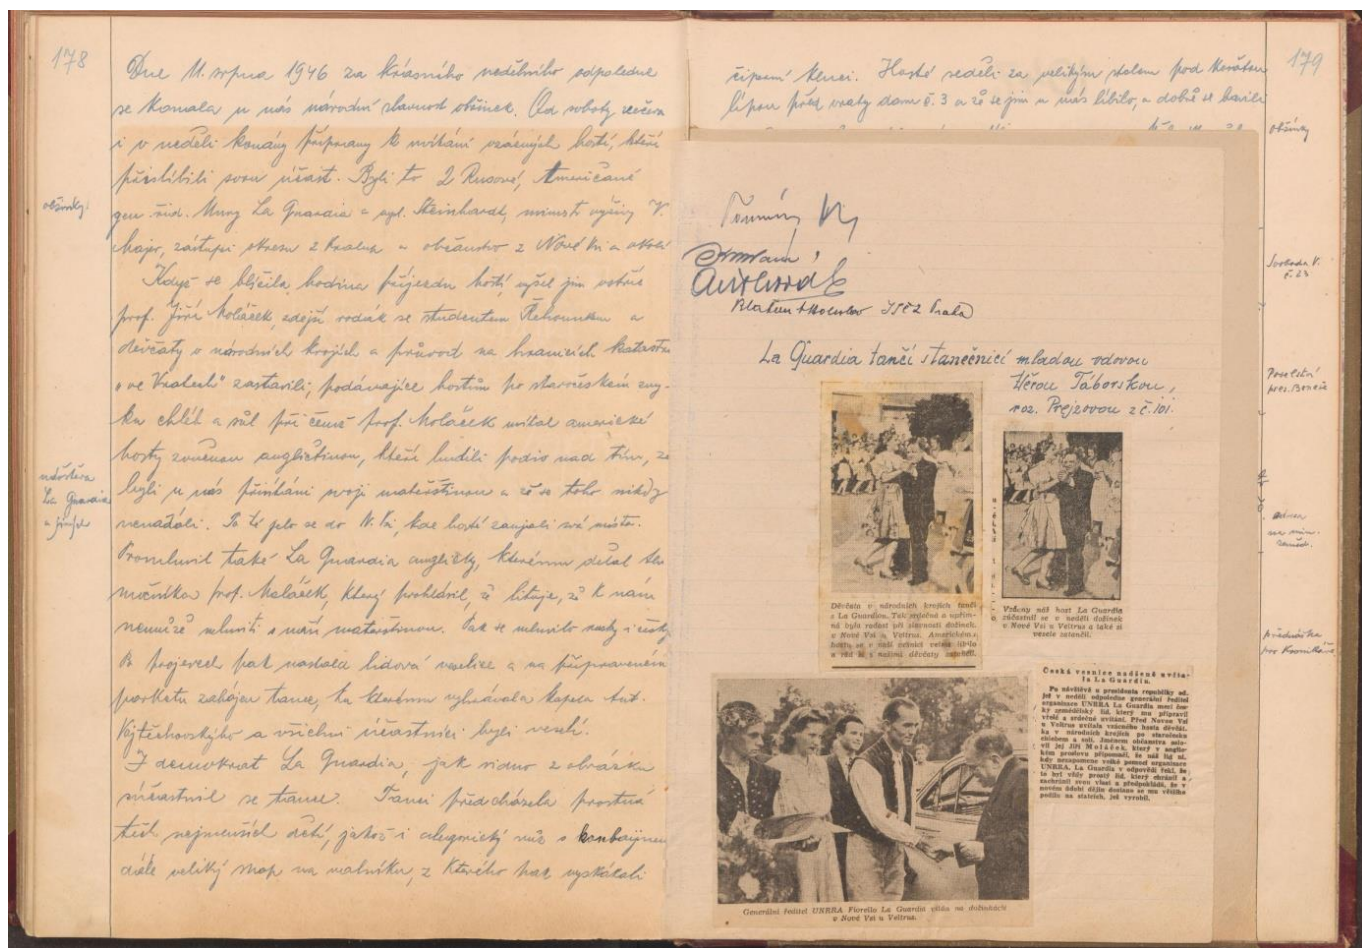 178
Dne 11. srpna 1946 za krásného nedělního odpoledne
se konala u nás národní slavnost obžinek. Od soboty večera
i v neděli konány přípravy k uvítání vzácných hostí, kteří
přislíbili svou účast. Byli to 2 Rusové, Američané
gen. řid. Unry La Guardia a vysl. Steinhardt, ministr výživy V.
Majer, zástupci okresu z Kralup a občanstvo z Nové Vsi a okolí
Když se blížila hodina příjezdu hostí, vyšel jim vstříc
prof. Jiří Moláček, zdejší rodák se studentem Řehounkem a
děvčaty v národních krojích a průvod na hranicích katastru
"ve Vratech" zastavili, podávajíce hostům po staročeském zvy-
ku chléb a sůl při čemž prof. Moláček uvítal americké
hosty zvučnou angličtinou, kteří budili podiv nad tím, že
byli u nás přivítáni svojí mateřštinou a že se toho nikdy
nenadáli. Pa té jelo se do N. Vsi, kde hosté zaujali svá místa.
Promluvil také La Guardia anglicky, kterému dělal tlu-
močníka prof. Moláček, který prohlásil, že lituje, že k nám
nemůže mluviti naší mateřštinou. Tak se mluvilo rusky i česky
Po projevech pak nastala lidová veselice a na připraveném
parketu zahájen tanec, ku kterému vyhrávala kapela Ant.
Vojtěchovského a všichni účastníci byli veselí.
I demokrat La Guardia, jak vidno z obrázku
súčastnil se tance. Tanci předcházela prostná
těch nejmenších dětí, jakož i alegorický vůz s kombajnem
dále veliký snop na valníku, z kterého pak vyskákali
obžinky.
návštěva
La Guardia
a jiných
179
čiperní kluci. Hosté seděli za velikým stolem pod košatou
lípou před vraty domu č. 3 a že se jim u nás líbilo, a dobře se bavili
obžinky
Svoboda V.
č. 23
Poselství
pres. Beneše
na min.
zeměd.
přednáška
pro kronikáře
Praha
La Guardia tančí s tanečnicí mladou vdovou
Věrou Táborskou,
roz. Prejzovou z č. 101.
Děvčata v národních krojích tančí
s La Guardiou. Tak srdečná a upřím-
ná byla radost při slavnosti dožinek
v Nové Vsi u Veltrus. Americkému
hostu se v naší vesnici velmi líbilo
a rád si s našimi děvčaty zatančil.
Vzácný náš host La Guardia
zúčastnil se v neděli dožinek
v Nové Vsi u Veltrus a také si
vesele zatančil.
Generální ředitel UNRRA Fiorello La Guardia vítán na dožinkách
v Nové Vsi u Veltrus.
Česká vesnice nadšeně uvíta-
la La Guardia.
Po návštěvě u presidenta republiky od-
jel v neděli odpoledne generální ředitel
organisace UNRRA La Guardia mezi čes-
ký zemědělský lid, který mu připravil
vřelé a srdečné uvítání. Před Novou Vsí
u Veltrus uvítala vzácného hosta děvčát-
ka v národních krojích po staročesku
chlebem a solí. Jménem občanstva oslo-
vil jej Jiří Moláček, který v anglic-
kém proslovu připomněl, že náš lid ni-
kdy nezapomene velké pomoci organisace
UNRRA. La Guardia v odpovědi řekl, že
to byl vždy prostý lid, který chránil a
zachránil svou vlast a předpokládá, že v
novém údobí dějin dostane se mu většího
podílu na statcích, jež vyrobil.